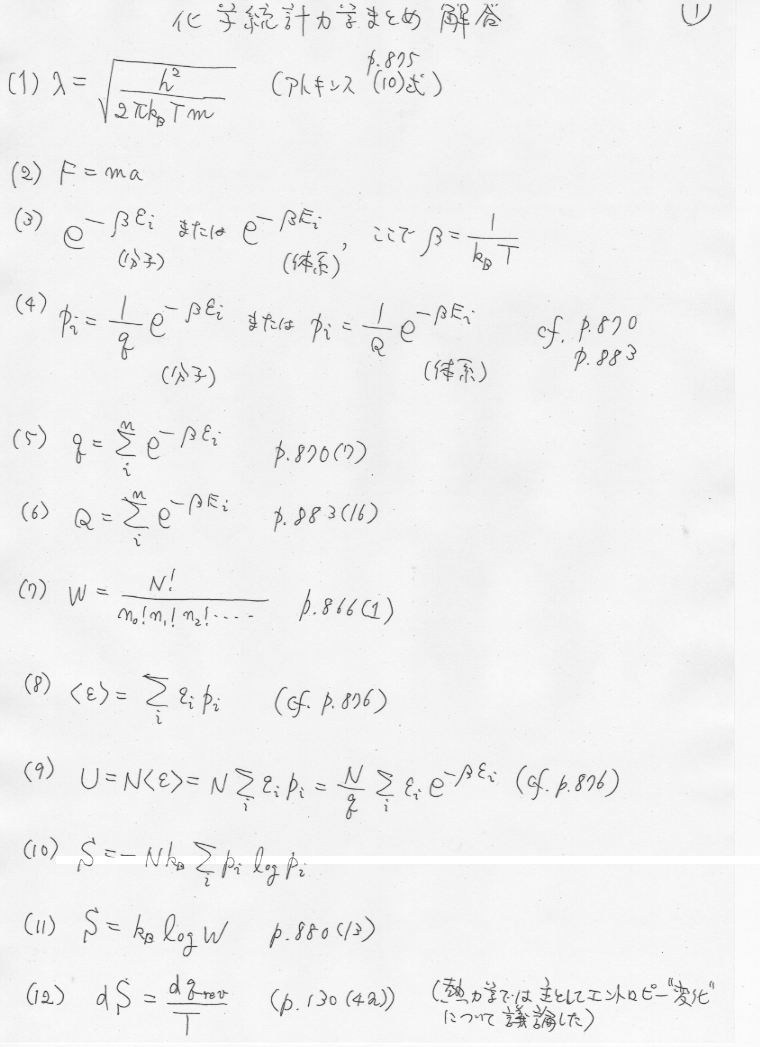 化学統計力学まとめ 解答 ①
(1) λ = √(h² / 2πk_BTm) (アトキンス p.875 (10)式)
(2) F = ma
(3) e^{-βε_i} または e^{-βE_i}, ここで β = 1 / k_BT
(分子) (体系)
(4) p_i = 1/q e^{-βε_i} または p_i = 1/Q e^{-βE_i} cf. p.870
p.883
(分子) (体系)
(5) q = Σ_i^n e^{-βε_i} p.870(7)
(6) Q = Σ_i^n e^{-βE_i} p.883(16)
(7) W = N! / n₀!n₁!n₂!···· p.866(1)
(8) <ε> = Σ_i ε_i p_i (cf. p.876)
(9) U = N<ε> = N Σ_i ε_i p_i = N/q Σ_i ε_i e^{-βε_i} (cf. p.876)
(10) S = -Nk_B Σ_i p_i log p_i
(11) S = k_B log W p.880(13)
(12) dS = dq_rev / T (p.130(42)) (熱力学では主としてエントロピー"変化"
について議論した)